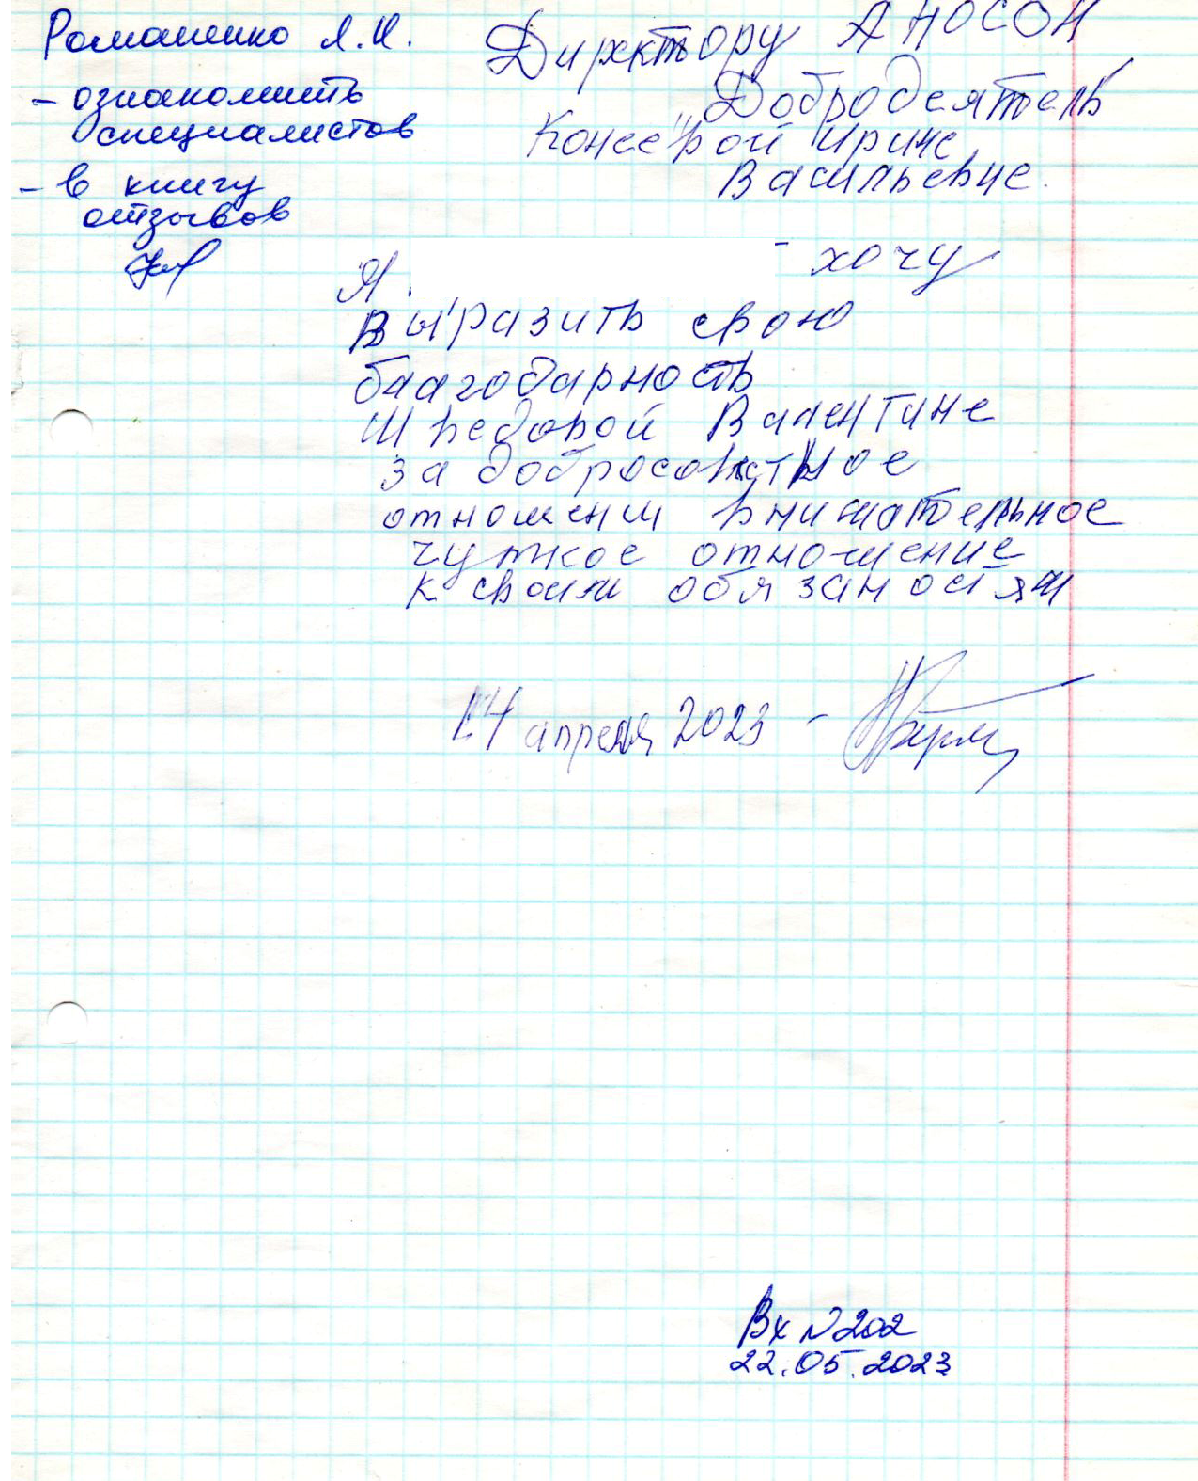 Романенко Л.И.
- ознакомить
специалистов
- в книгу
отзывов
Директору АНОСОН
"Добродеятель"
Ирине
Васильевне.
Я - хочу
Выразить свою
благодарность
Шредоровой Валентине
за добросовестное
отношении внимательное
чуткое отношение
к своим обязаностям
14 апреля 2023 -
Вх №202
22.05.2023